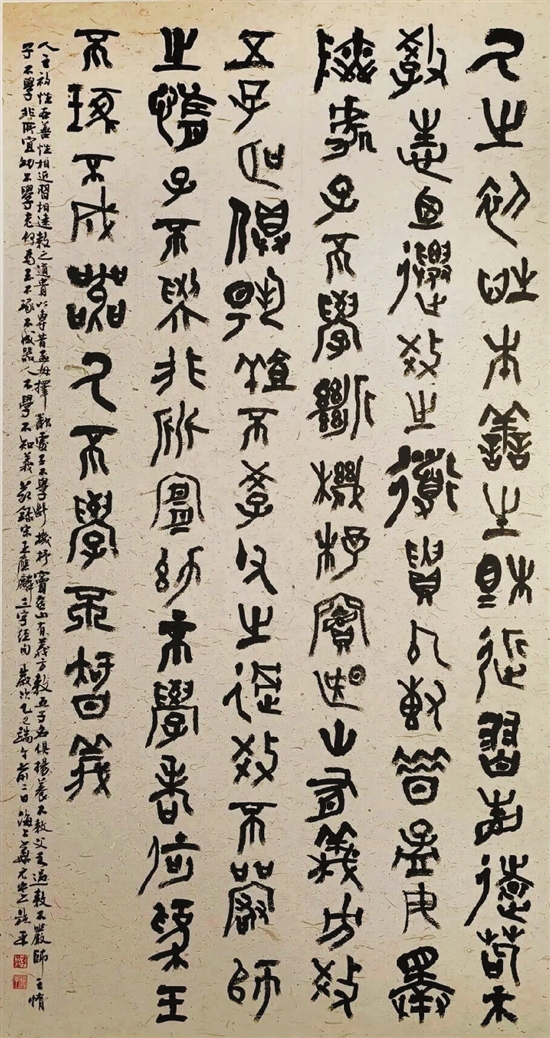 人之初性本善性相近習相遠苟不
教性乃遷教之道貴以專昔孟母擇
鄰處子不學斷機杼竇燕山有義方教
五子名俱揚養不教父之過教不嚴師
之惰子不學非所宜幼不學老何為玉
不琢不成器人不學不知義
人之初性本善性相近習相遠教之道貴以專昔孟母擇鄰處子不學斷機杼竇燕山有義方教五子名俱揚養不教父之過教不嚴師之惰
子不學非所宜幼不學老何為玉不琢不成器人不學不知義錄宋王應麟三字經句歲次乙巳端午前二日海上